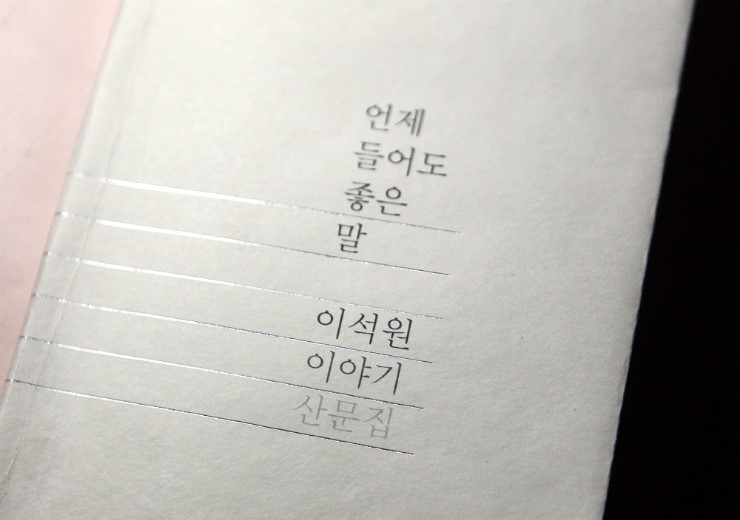 언제
들어도
좋은
말
이석원
이야기
산문집